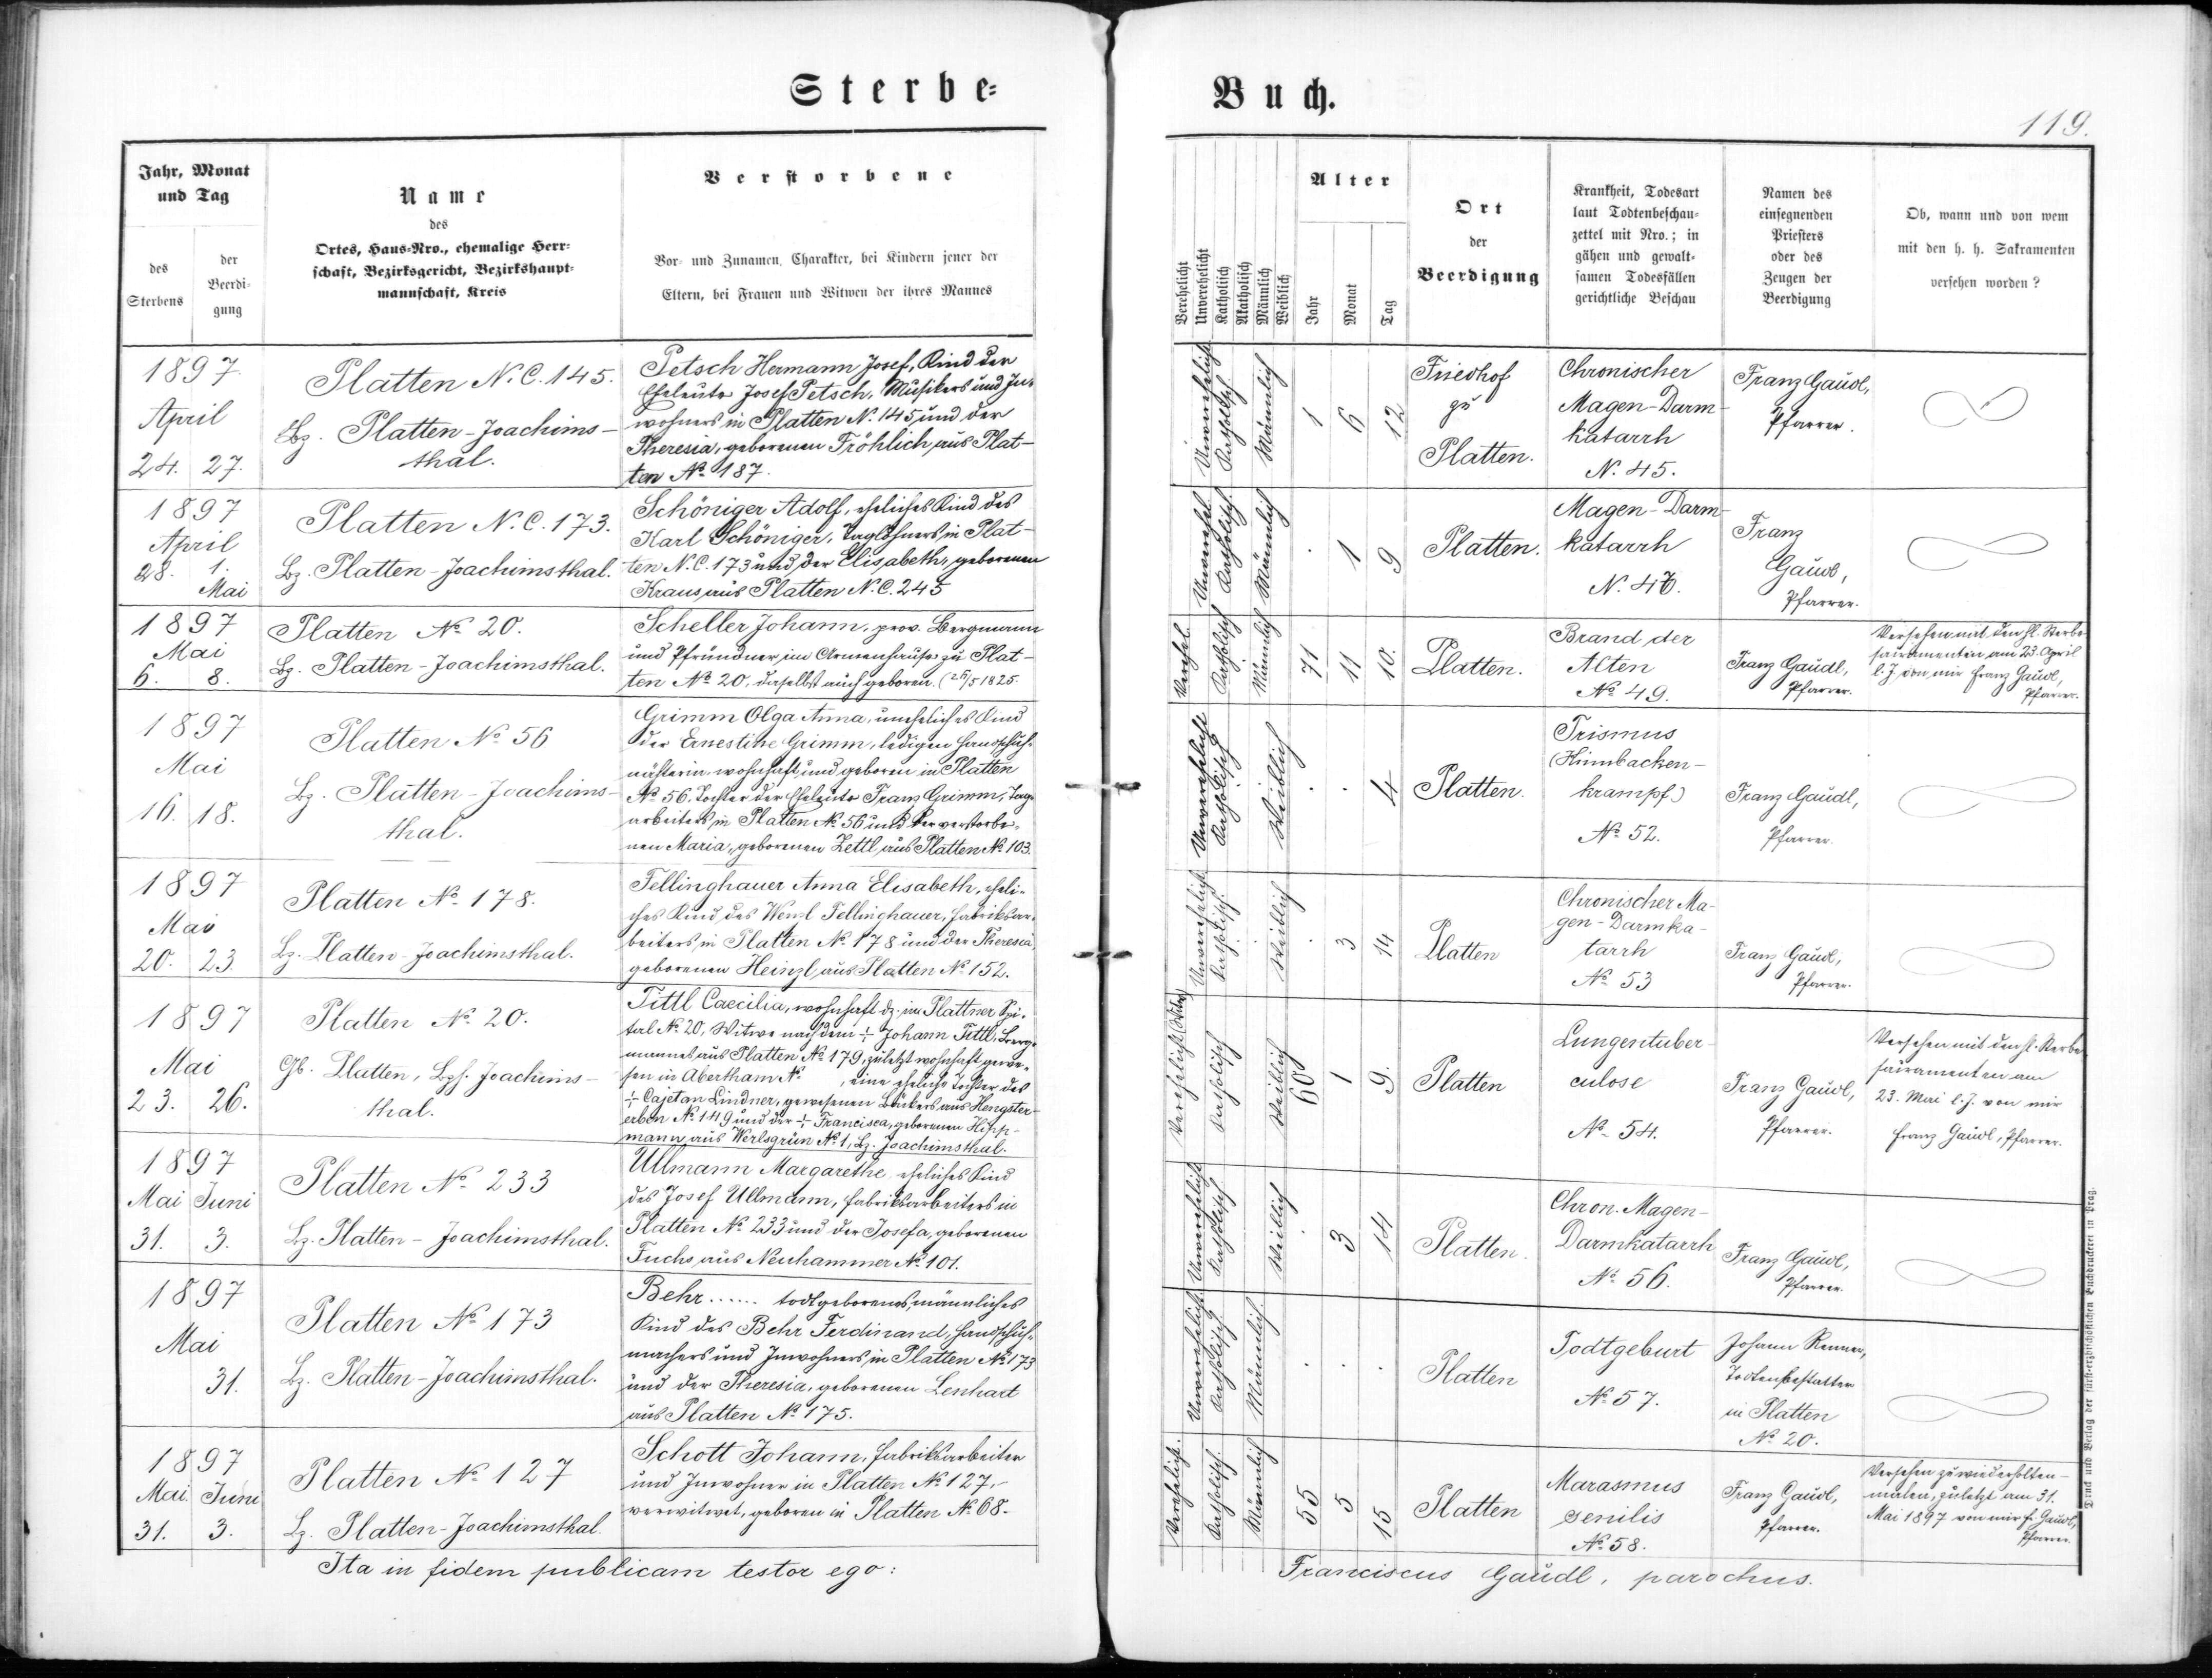 Sterbe=
Jahr, Monat
und Tag
des
Sterbens
der
Beerdi-
gung
Name
des
Ortes, Haus-Nro., ehemalige Herr-
schaft, Bezirksgericht, Bezirkshaupt-
mannschaft, Kreis
Verstorbene
Vor- und Zunamen, Charakter, bei Kindern jener der
Eltern, bei Frauen und Witwen der ihres Mannes
1897
April
24. 27.
Platten N.C. 145.
Bz. Platten-Joachims-
thal.
Petsch Hermann Josef, Kind der
Eheleute Josef Petsch, Musikers und In-
wohners in Platten N. 145 und der
Theresia, geborenen Fröhlich aus Plat-
ten No 187.
1897
April
28. 1.
Mai
Platten N.C. 173.
Bz. Platten-Joachimsthal.
Schöniger Adolf, eheliches Kind des
Karl Schöniger, Taglöhners in Plat-
ten N.C. 173 und der Elisabeth, geborenen
Kraus aus Platten N.C. 245
1897
Mai
6. 8.
Platten No 20.
Bz. Platten-Joachimsthal.
Scheller Johann, prov. Bergmann
und Pfründner im Armenhause zu Plat-
ten No 20, daselbst auch geboren. (26/5 1825.
1897
Mai
16. 18.
Platten No 56
Bz. Platten-Joachims-
thal.
Grimm Olga Anna, uneheliches Kind
der Ernestine Grimm, ledigen Handschuh-
nähterin, wohnhaft und geboren in Platten
No 56, Tochter der Eheleute Franz Grimm, Tag-
arbeiters in Platten No 56 und der verstorbe-
nen Maria, geborenen Zettl aus Platten No 103.
1897
Mai
20. 23.
Platten No 178.
Bz. Platten-Joachimsthal.
Fellinghauer Anna Elisabeth, eheli-
ches Kind des Wenzl Fellinghauer, Fabriksar-
beiters in Platten No 178 und der Theresia,
geborenen Heinzl aus Platten No 152.
1897
Mai
23. 26.
Platten No 20.
Gb. Platten, Bzh. Joachims-
thal.
Tittl Caecilia, wohnhaft dz. im Plattner Spi-
tal No 20, Witwe nach dem + Johann Tittl, Berg-
mannes aus Platten No 179, zuletzt wohnhaft gewe-
sen in Abertham No , eine eheliche Tochter des
+ Cajetan Lindner, gewesenen Bäckers aus Hengster-
erben No 149 und der + Francisca, geborenen Hipp-
mann aus Werlsgrün No 1, Bz. Joachimsthal.
1897
Mai Juni
31. 3.
Platten No 233
Bz. Platten-Joachimsthal.
Ullmann Margarethe, eheliches Kind
des Josef Ullmann, Fabriksarbeiters in
Platten No 233 und der Josefa, geborenen
Fuchs aus Neuhammer No 101.
1897
Mai
31.
Platten No 173
Bz. Platten-Joachimsthal.
Behr ...... todtgeborenes männliches
Kind des Behr Ferdinand, Handschuh-
machers und Inwohners in Platten No 173
und der Theresia, geborenen Lenhart
aus Platten No 175.
1897
Mai. Juni
31. 3.
Platten No 127
Bz. Platten-Joachimsthal.
Schott Johann, Fabriksarbeiter
und Inwohner in Platten No 127,-
verwitwet, geboren in Platten No 68.
Ita in fidem publicam testor ego:
Buch.
119.
Verehelicht
Unverehelicht
Katholisch
Akatholisch
Männlich
Weiblich
Alter
Jahr
Monat
Tag
Ort
der
Beerdigung
Krankheit, Todesart
laut Todtenbeschau-
zettel mit Nro.; in
gähen und gewalt-
samen Todesfällen
gerichtliche Beschau
Namen des
einsegnenden
Priesters
oder des
Zeugen der
Beerdigung
Ob, wann und von wem
mit den h. h. Sakramenten
versehen worden?
Unverehelicht
Katholisch
Männlich
1 6 12
Friedhof
zu
Platten.
Chronischer
Magen-Darm-
katarrh
N. 45.
Franz Gaudl,
Pfarrer.
Unverehel.
Katholisch
Männlich
. 1 9
Platten.
Magen-Darm-
katarrh
Franz
Gaudl,
Pfarrer.
Verehel.
Katholisch
Männlich
71 11 10.
Platten.
Brand der
Alten
No 49.
Franz Gaudl,
Pfarrer.
Versehen mit den hl. Sterbe-
sakramenten am 23. April
l. J. von mir Franz Gaudl,
Pfarrer.
Unverehelicht
Katholisch
Weiblich
. . 4
Platten.
Trismus
(Kinnbacken-
krampf)
No 52.
Franz Gaudl,
Pfarrer.
Unverehelicht
Katholisch.
Weiblich
. 3 14
Platten
Chronischer Ma-
gen-Darmka-
tarrh
No 53
Franz Gaudl,
Pfarrer.
Verehelicht (Witwe)
Katholisch
Weiblich
60 1 9.
Platten
Lungentuber-
culose
No 54.
Franz Gaudl,
Pfarrer.
Versehen mit den hl. Sterbe-
sakramenten am
23. Mai l. J. von mir
Franz Gaudl, Pfarrer.
Unverehelicht
Katholisch
Weiblich
. 3 14
Platten.
Chron. Magen-
Darmkatarrh
No 56.
Franz Gaudl,
Pfarrer.
Unverehelicht.
Katholisch.
Männlich.
. . .
Platten
Todtgeburt
No 57.
Johann Renner,
Todtenbestatter
in Platten
No 20.
Verehelicht.
Katholisch.
Männlich
55 5 15
Platten
Marasmus
senilis
No 58.
Franz Gaudl,
Pfarrer.
Versehen zu wiederholten-
malen, zuletzt am 31.
Mai 1897 von mir Fr. Gaudl,
Pfarrer.
Franciscus Gaudl, parochus.
Druck und Verlag der fürst-erzbischöflichen Buchdruckerei in Prag.